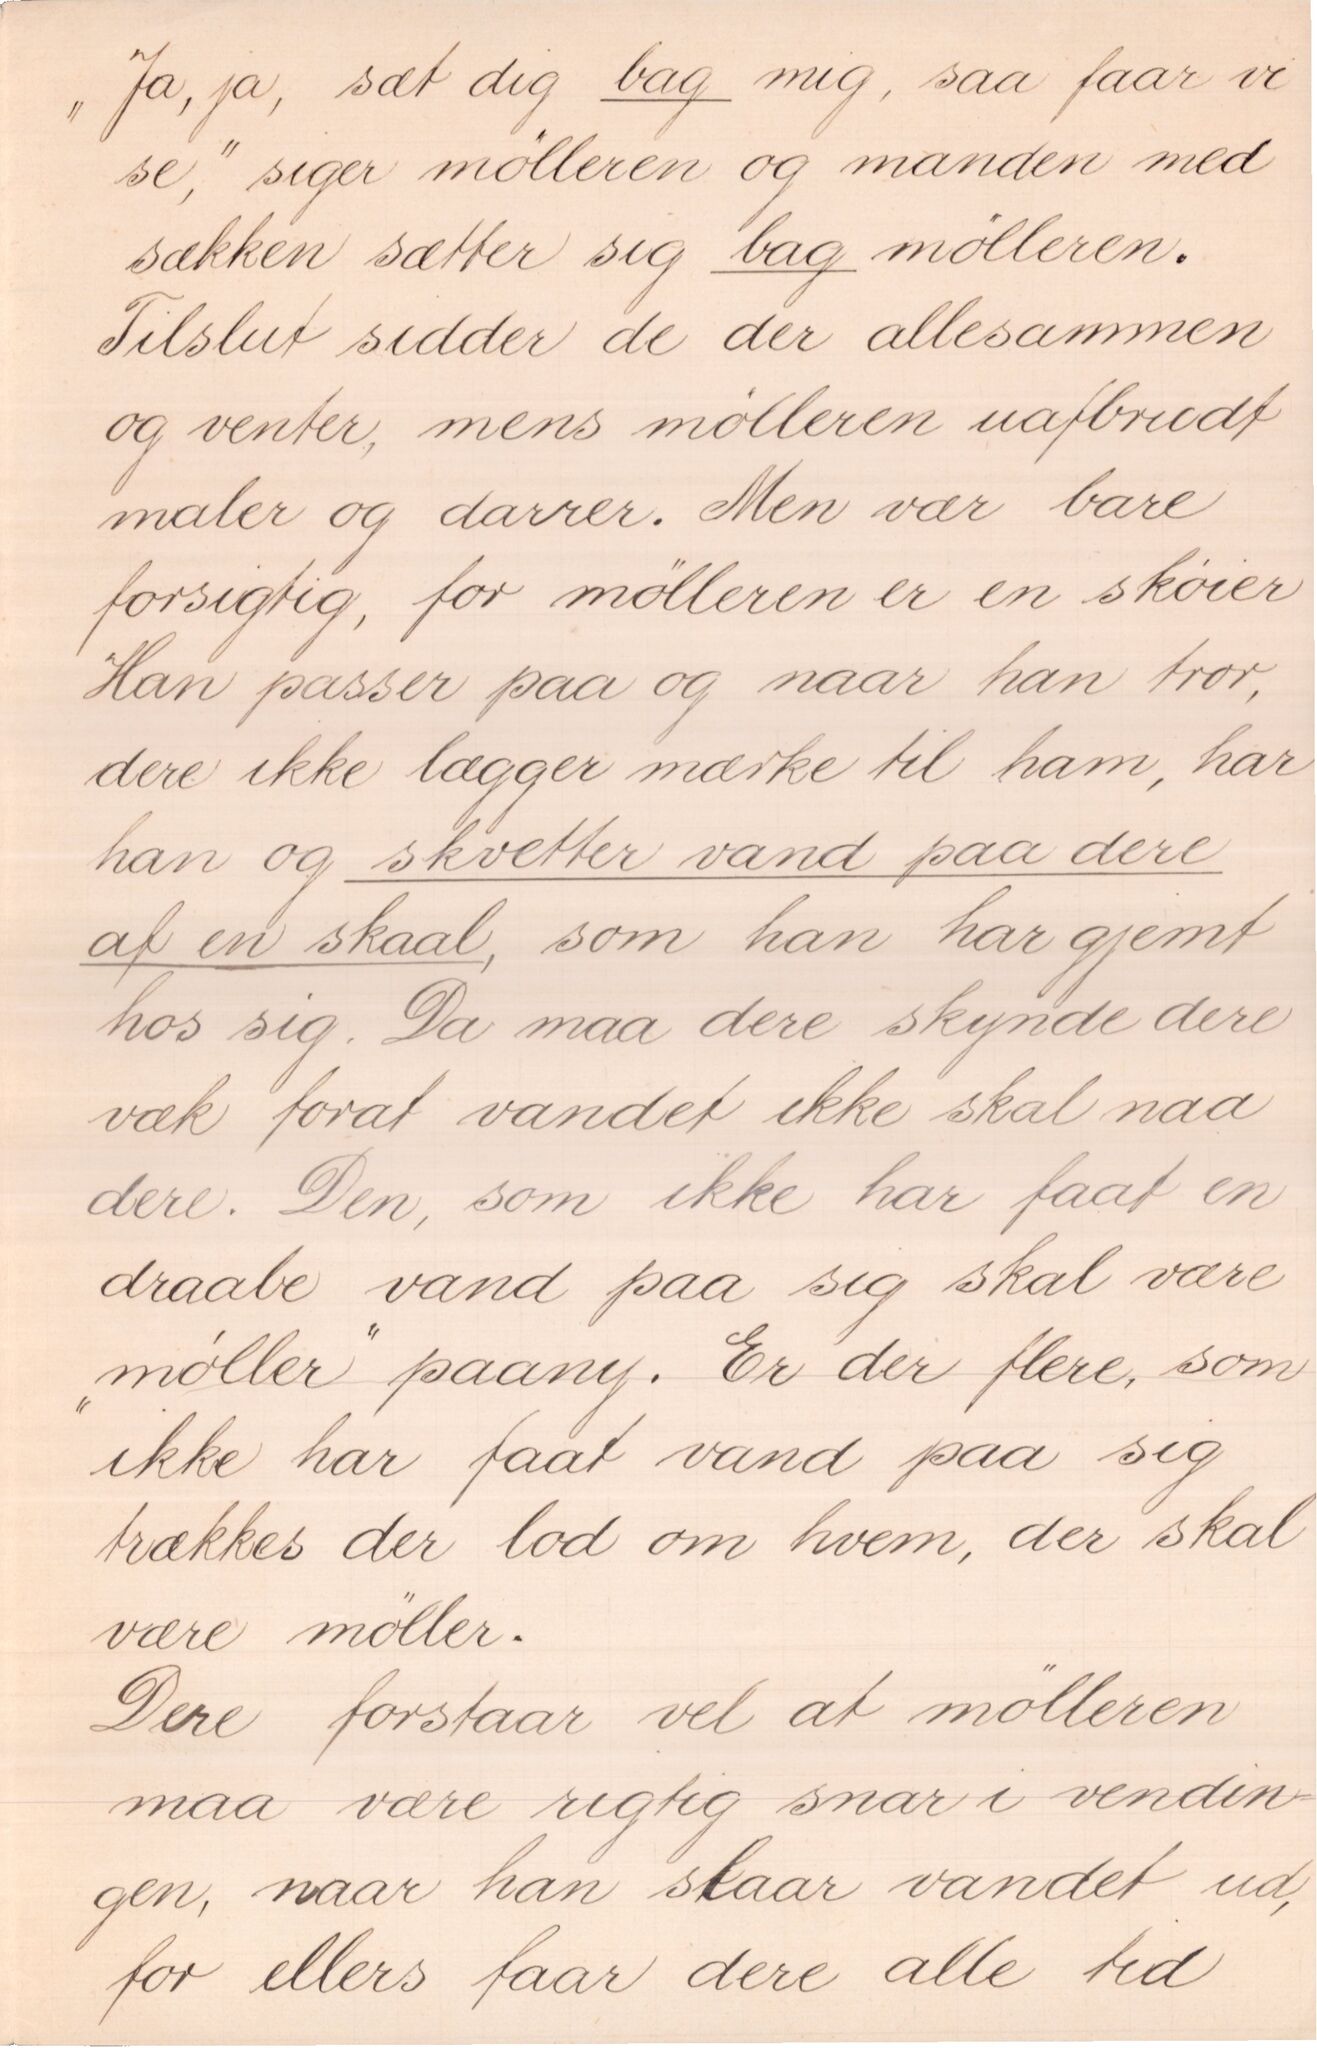 „Ja, ja, sæt dig bag mig, saa faar vi
se,” siger mölleren og manden med
sækken sætter sig bag mölleren.
Tilslut sidder de der allesammen
og venter, mens mölleren uafbrudt
maler og darrer. Men vær bare
forsigtig, for mölleren er en sköier
Han passer paa og naar han tror,
dere ikke lægger mærke til ham, har
han og skvetter vand paa dere
af en skaal, som han har gjemt
hos sig. Da maa dere skynde dere
væk forat vandet ikke skal naa
dere. Den, som ikke har faat en
draabe vand paa sig skal være
„möller” paany. Er der flere, som
ikke har faat vand paa sig
trækkes der lod om hvem, der skal
være möller.
Dere forstaar vel at mölleren
maa være rigtig snar i vendin-
gen, naar han slaar vandet ud,
for ellers faar dere alle tid